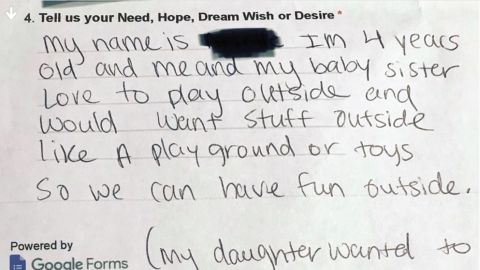 4. Tell us your Need, Hope, Dream Wish or Desire *
My name is Im 4 years
old and me and my baby sister
Love to play outside and
would want stuff outside
like A play ground or toys
So we can have fun outside.
Powered by
Google Forms
(my daughter wanted to